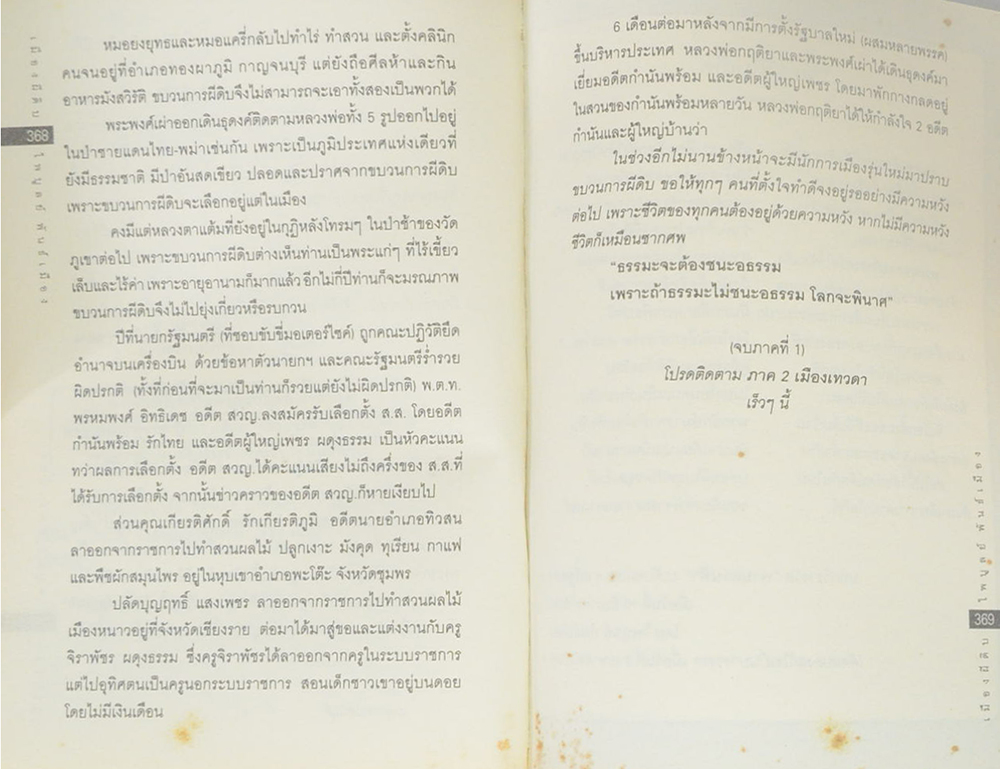 หมอยงยุทธและหมอแคร์กลับไปทำไร่ ทำสวน และตั้งคลินิก
คนจนอยู่ที่อำเภอทองผาภูมิ กาญจนบุรี แต่ยังถือศีลห้าและกิน
อาหารมังสวิรัติ ขบวนการผีดิบจึงไม่สามารถจะเอาทั้งสองเป็นพวกได้
พระพงศ์เผ่าออกเดินธุดงค์ติดตามหลวงพ่อทั้ง 5 รูปออกไปอยู่
ในป่าชายแดนไทย-พม่าเช่นกัน เพราะเป็นภูมิประเทศแห่งเดียวที่
ยังมีธรรมชาติ มีป่าอันสดเขียว ปลอดและปราศจากขบวนการผีดิบ
เพราะขบวนการผีดิบจะเลือกอยู่แต่ในเมือง
คงมีแต่หลวงตาแต้มที่ยังอยู่ในกุฏิหลังโทรมๆ ในป่าช้าของวัด
ภูเขาต่อไป เพราะขบวนการผีดิบต่างเห็นท่านเป็นพระแก่ๆ ที่ไร้เขี้ยว
เล็บและไร้ค่า เพราะอายุอานามก็มากแล้ว อีกไม่กี่ปีท่านก็จะมรณภาพ
ขบวนการผีดิบจึงไม่ไปยุ่งเกี่ยวหรือรบกวน
ปีที่นายกรัฐมนตรี (ที่ชอบขับขี่มอเตอร์ไซค์) ถูกคณะปฏิวัติยึด
อำนาจบนเครื่องบิน ด้วยข้อหาตัวนายกฯ และคณะรัฐมนตรีร่ำรวย
ผิดปรกติ (ทั้งที่ก่อนที่จะมาเป็นท่านก็รวยแต่ยังไม่ผิดปรกติ) พ.ต.ท.
พรหมพงศ์ อิทธิเดช อดีต สวญ.ลงสมัครรับเลือกตั้ง ส.ส. โดยอดีต
กำนันพร้อม รักไทย และอดีตผู้ใหญ่เพชร ผดุงธรรม เป็นหัวคะแนน
ทว่าผลการเลือกตั้ง อดีต สวญ.ได้คะแนนเสียงไม่ถึงครึ่งของ ส.ส.ที่
ได้รับการเลือกตั้ง จากนั้นข่าวคราวของอดีต สวญ.ก็หายเงียบไป
ส่วนคุณเกียรติศักดิ์ รักเกียรติภูมิ อดีตนายอำเภอทิวสน
ลาออกจากราชการไปทำสวนผลไม้ ปลูกเงาะ มังคุด ทุเรียน กาแฟ
และพืชผักสมุนไพร อยู่ในหุบเขาอำเภอพะโต๊ะ จังหวัดชุมพร
ปลัดบุญฤทธิ์ แสงเพชร ลาออกจากราชการไปทำสวนผลไม้
เมืองหนาวอยู่ที่จังหวัดเชียงราย ต่อมาได้มาสู่ขอและแต่งงานกับครู
จิราพัชร ผดุงธรรม ซึ่งครูจิราพัชรได้ลาออกจากครูในระบบราชการ
แต่ไปอุทิศตนเป็นครูนอกระบบราชการ สอนเด็กชาวเขาอยู่บนดอย
โดยไม่มีเงินเดือน
เมืองผีดิบ
368
ไพฑูรย์ พันธ์เมือง
6 เดือนต่อมาหลังจากมีการตั้งรัฐบาลใหม่ (ผสมหลายพรรค)
ขึ้นบริหารประเทศ หลวงพ่อกฤติยาและพระพงศ์เผ่าได้เดินธุดงค์มา
เยี่ยมอดีตกำนันพร้อม และอดีตผู้ใหญ่เพชร โดยมาพักกางกลดอยู่
ในสวนของกำนันพร้อมหลายวัน หลวงพ่อกฤติยาได้ให้กำลังใจ 2 อดีต
กำนันและผู้ใหญ่บ้านว่า
ในช่วงอีกไม่นานข้างหน้าจะมีนักการเมืองรุ่นใหม่มาปราบ
ขบวนการผีดิบ ขอให้ทุกๆ คนที่ตั้งใจทำดีจงอยู่รออย่างมีความหวัง
ต่อไป เพราะชีวิตของทุกคนต้องอยู่ด้วยความหวัง หากไม่มีความหวัง
ชีวิตก็เหมือนซากศพ
“ธรรมะจะต้องชนะอธรรม
เพราะถ้าธรรมะไม่ชนะอธรรม โลกจะพินาศ”
(จบภาคที่ 1)
โปรดติดตาม ภาค 2 เมืองเทวดา
เร็วๆ นี้
ไพฑูรย์ พันธ์เมือง
369
เมืองผีดิบ